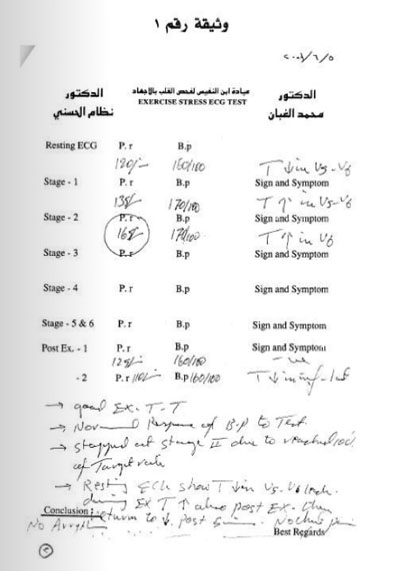 وثيقة رقم ١
٢٠٠١/٦/٥
الدكتور
نظام الحسني
عيادة ابن النفيس لفحص القلب بالاجهاد
EXERCISE STRESS ECG TEST
الدكتور
محمد الغبان
Resting ECG P.r B.p
120/- 150/100 T↓ in V5-V6
Stage - 1 P.r B.p Sign and Symptom
138/- 170/100 T↑ in V5-V6
Stage - 2 P.r B.p Sign and Symptom
168/- 170/100 T↑ in V6
Stage - 3 P.r B.p Sign and Symptom
Stage - 4 P.r B.p Sign and Symptom
Stage - 5 & 6 P.r B.p Sign and Symptom
Post Ex. - 1 P.r B.p Sign and Symptom
125/- 160/100 -ve
- 2 P.r 110/- B.p 160/100 T↓ in inf-lat
→ good EX.T.T
→ Normal Response of B.P to Test
→ stopped at stage II due to reached 100%
of Target rate
→ Resting ECG show T↓ in V5-V6
during EX T↑ also post EX.
Conclusion : return to ↓ post
No Arryth No chest pain
Best Regards